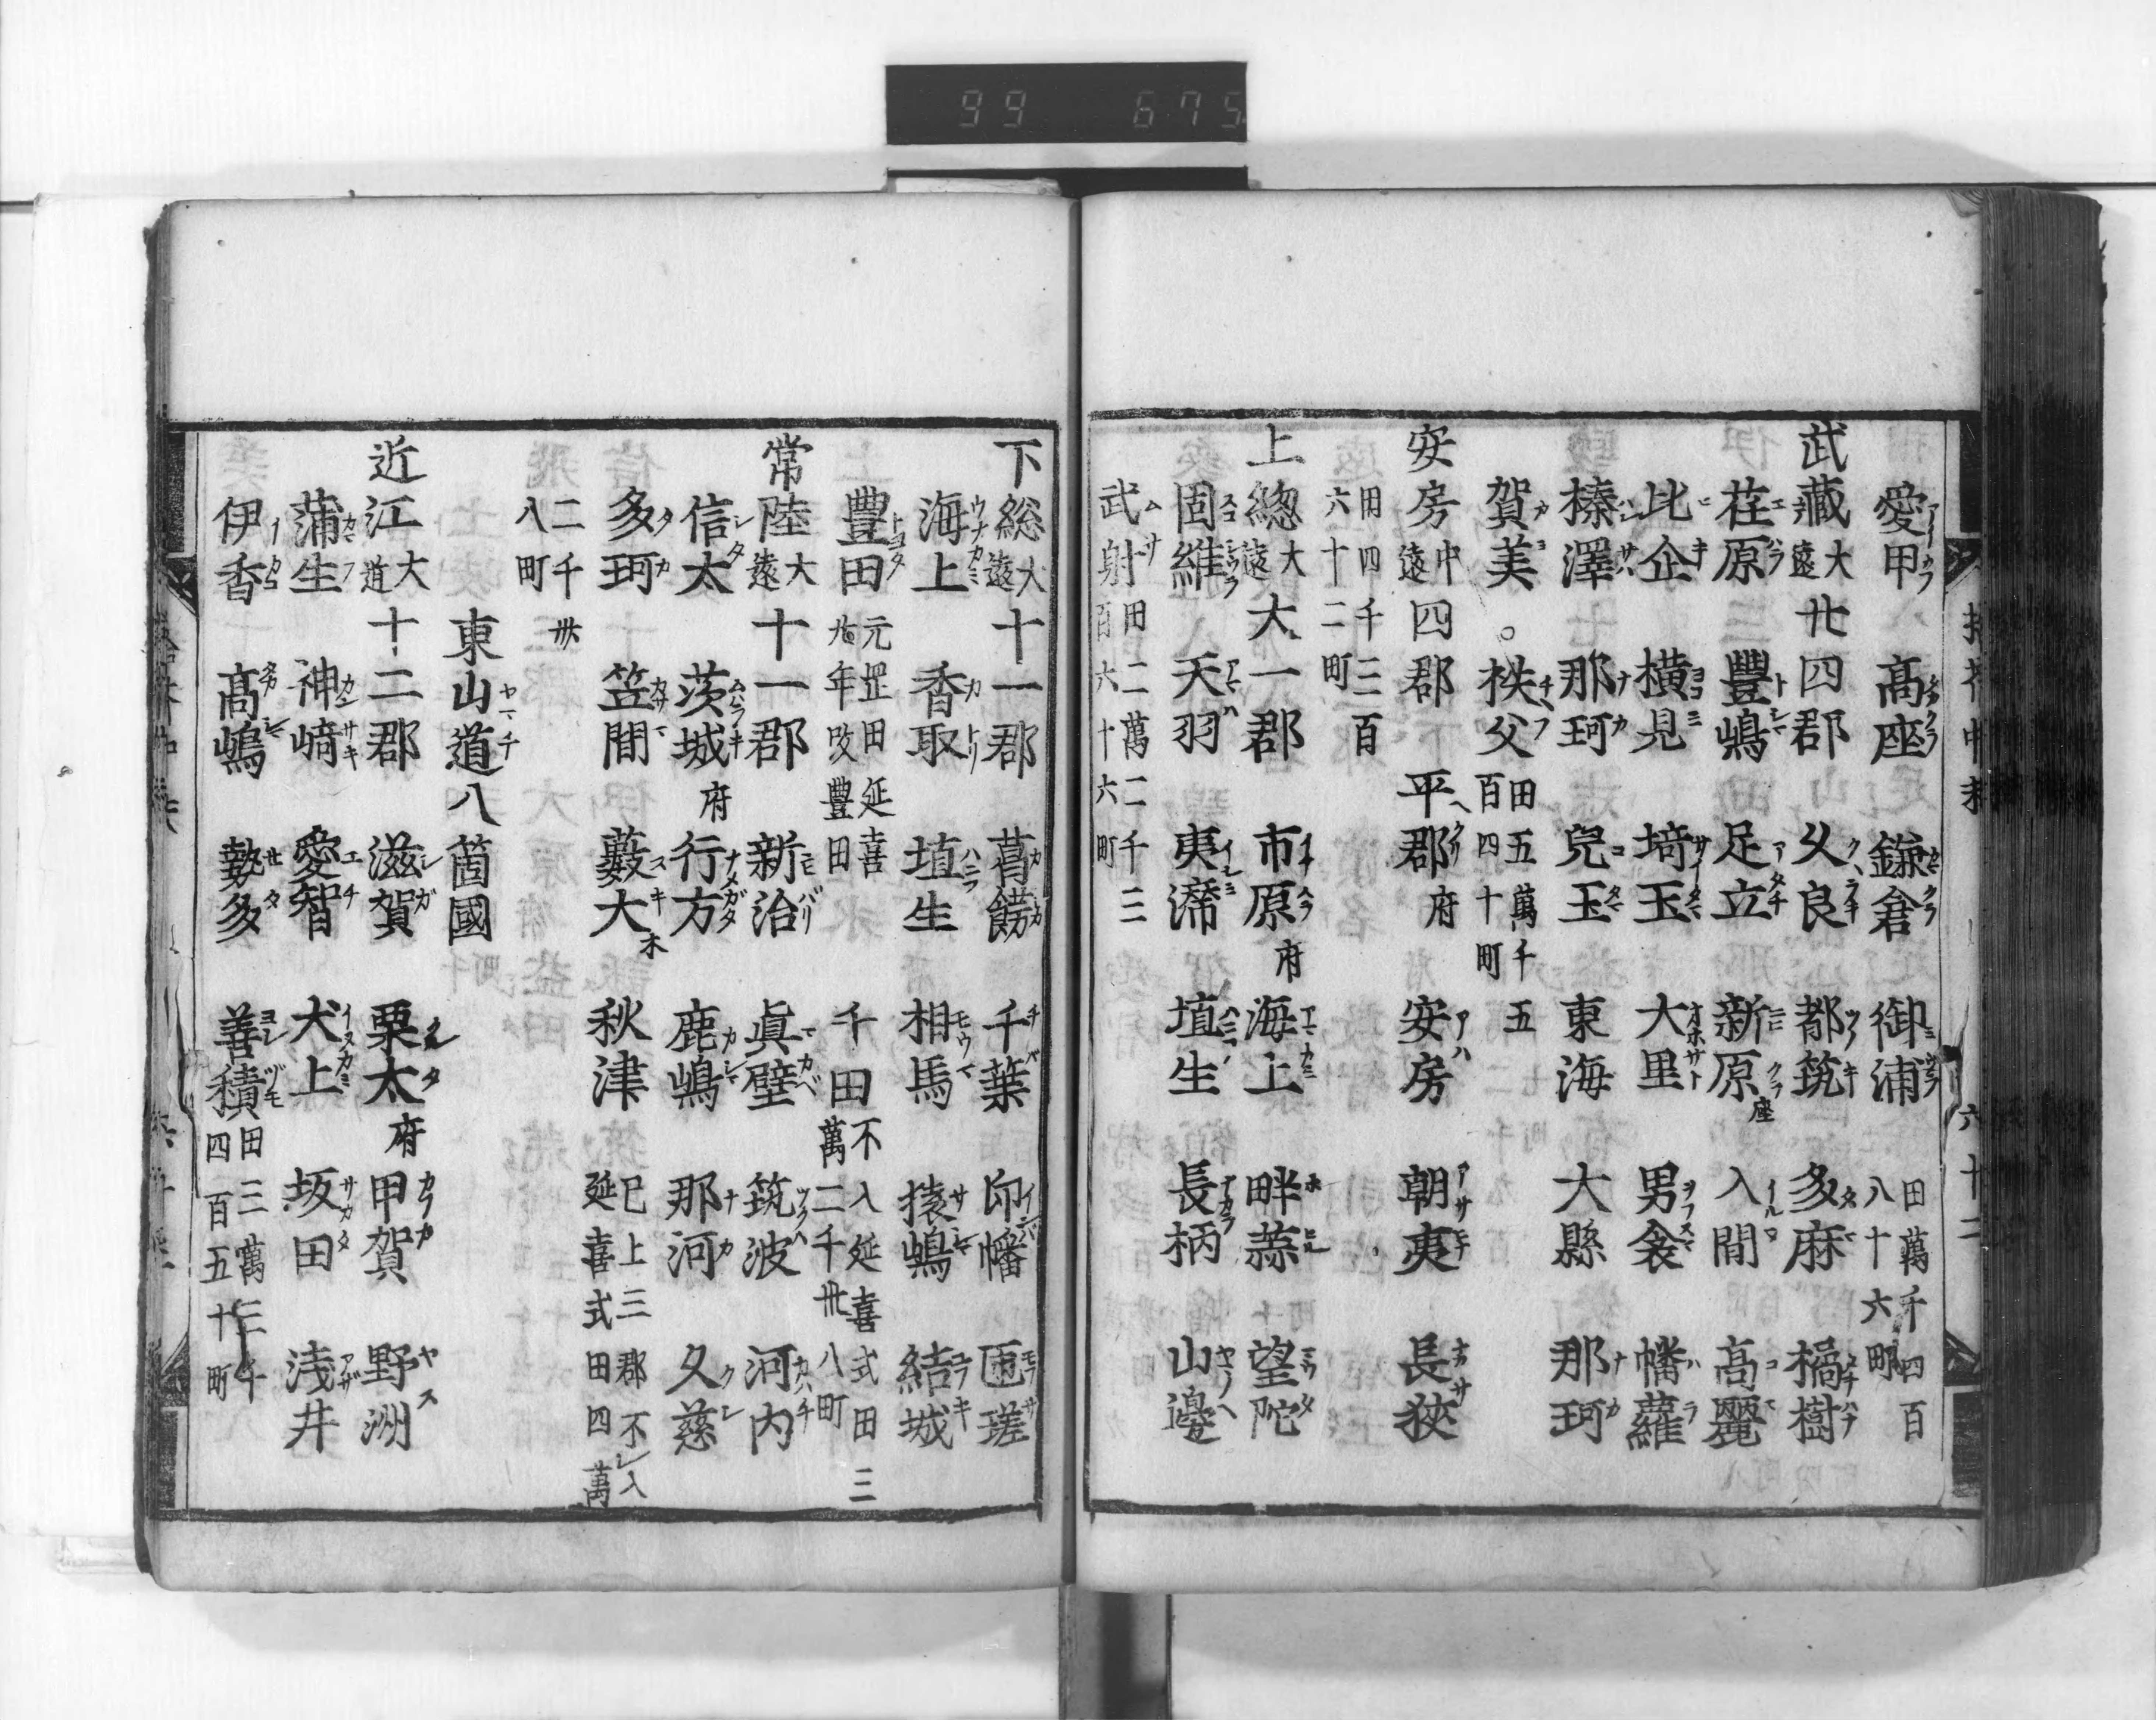 99 675
愛甲 高座 鎌倉 御浦 田萬千四百八十六町
武藏 大遠 廿四郡 久良 都筑 多麻 橘樹
荏原 豐嶋 足立 新座 入間 高麗
比企 橫見 埼玉 大里 男衾 幡蘿
榛澤 那珂 兒玉 東海 大縣 那珂
賀美 秩父 田五萬千五百四十町
安房 中遠 四郡 平郡 府 安房 朝夷 長狹
田四千三百六十二町
上總 大遠 大一郡 市原 府 海上 畔蒜 望陀
固維 天羽 夷灊 埴生 長柄 山邊
武射 田二萬二千三百六十六町
下総 大遠 十一郡 葛餝 千葉 印幡 匝瑳
海上 香取 埴生 相馬 猿嶋 結城
豊田 元罡田延喜 年改豐田 千田 不入延喜式田三萬二千卅八町
常陸 大遠 十一郡 新治 眞壁 筑波 河内
信太 茨城 府 行方 鹿嶋 那河 久慈
多珂 笠間 藪大 秋津 已上三郡不入延喜式田四萬
二千卅八町
東山道八箇國
近江 大道 十二郡 滋賀 栗太 府 甲賀 野洲
蒲生 神崎 愛智 犬上 坂田 浅井
伊香 髙嶋 勢多 善積 田三萬三千四百五十町
六十二